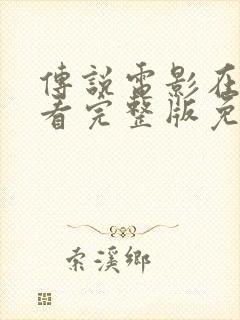 傳說電影在
看完整版免
索溪鄉